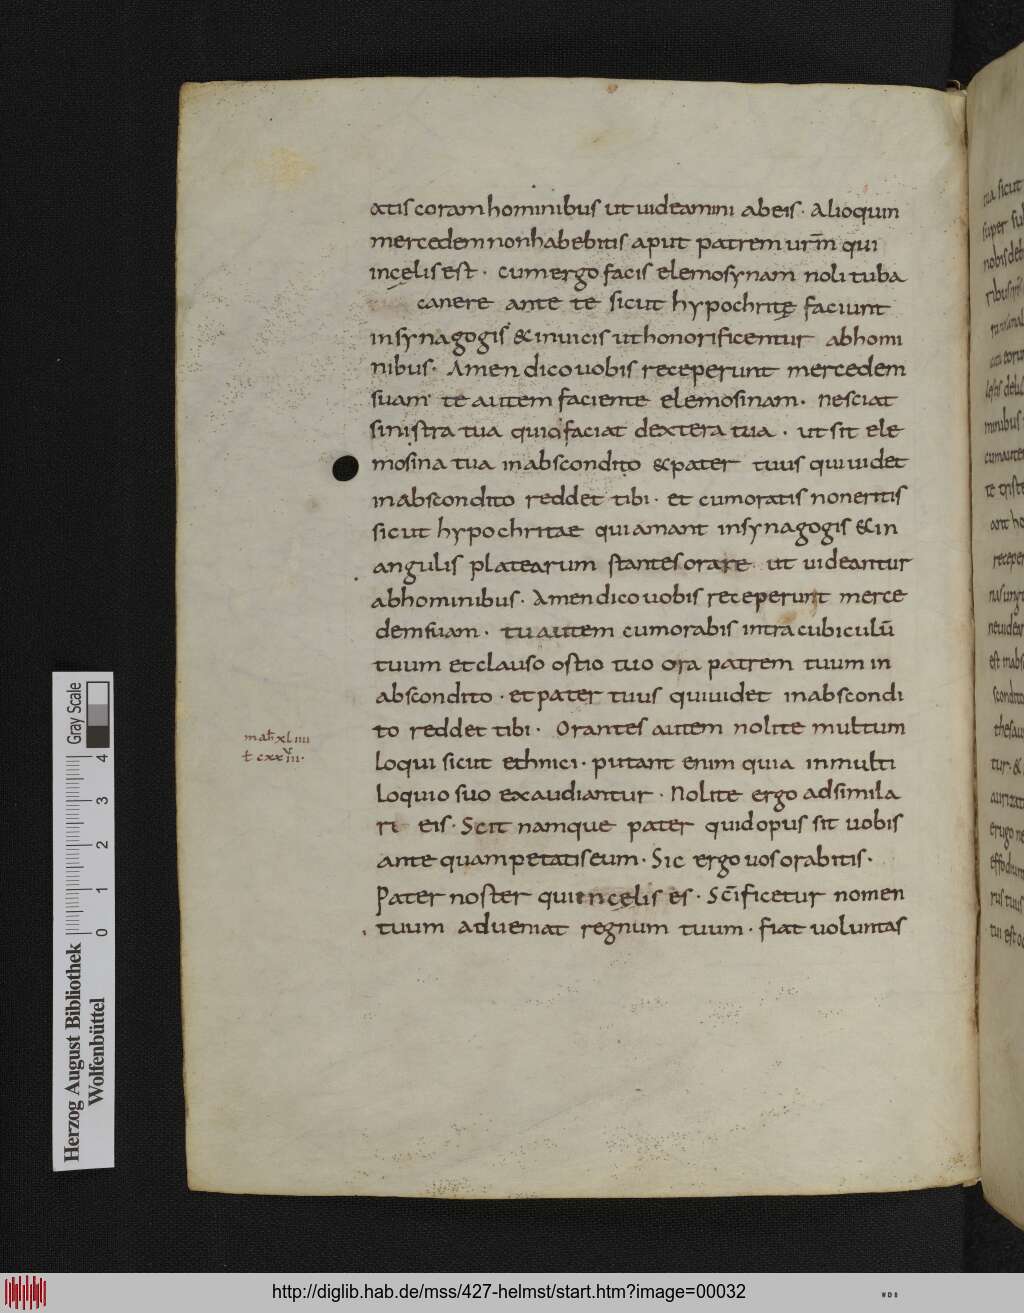 atis coram hominibus ut uideamini ab eis · Alioquin
mercedem non habebitis aput patrem urm̄ qui
in cęlis est · cum ergo facis elemosynam noli tuba
canere ante te sicut hypochritę faciunt
in synagogis & in uicis ut honorificentur ab homi
nibus · Amen dico uobis receperunt mercedem
suam te autem faciente elemosinam · nesciat
sinistra tua quid faciat dextera tua · ut sit ele
mosina tua in abscondito & pater tuus qui uidet
in abscondito reddet tibi · et cum oratis non eritis
sicut hypochritae qui amant in synagogis & in
angulis platearum stantes orare ut uideantur
ab hominibus · Amen dico uobis receperunt merce
dem suam · tu autem cum orabis intra cubiculū
tuum et clauso ostio tuo ora patrem tuum in
abscondito · et pater tuus qui uidet in abscondi
to reddet tibi · Orantes autem nolite multum
loqui sicut ethnici · putant enim quia in multi
loquio suo exaudiantur · Nolite ergo adsimila
ri eis · Scit namque pater quid opus sit uobis
ante quam petatis eum · Sic ergo uos orabitis ·
Pater noster qui in cęlis es · Sc̄ificetur nomen
tuum adueniat regnum tuum · fiat uoluntas
mat xliiii
cxxiii ·
tua sicut
super
nobis deb
ribus
Herzog August Bibliothek
Wolfenbüttel
0 1 2 3 4
Gray Scale
http://diglib.hab.de/mss/427-helmst/start.htm?image=00032
WDB